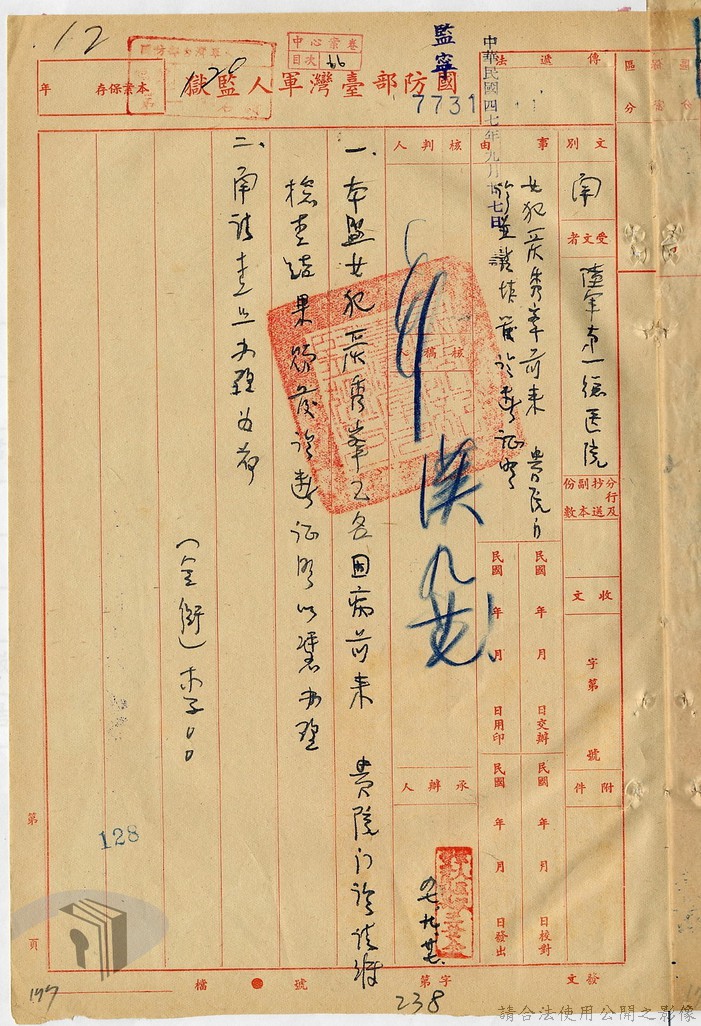 12
中心案卷
目次 66
128
年 本案保存
國防部臺灣軍人監獄
監寧
7731
中華民國四七年九月廿七日
傳遞法
區分
文別
函
受文者
陸軍第一總医院
分行及抄送副本份數
收文
字第
號
附件
事由
女犯
秀峯前来 貴院
診
診斷証明
核判人
核稿人
漢
九
民國 年 月 日交辦
民國 年 月 日用印
民國 年 月 日校對
民國 年 月 日發出
承辦人
四七、九、廿七
一、本監女犯
秀峯乙名因病前来 貴院门診請將
檢查結果賜發診斷証明以憑办理
二、函請查照办理为荷
(全銜)李○○
128
第
頁
177
檔 號
字第
238
發文
請合法使用公開之影像